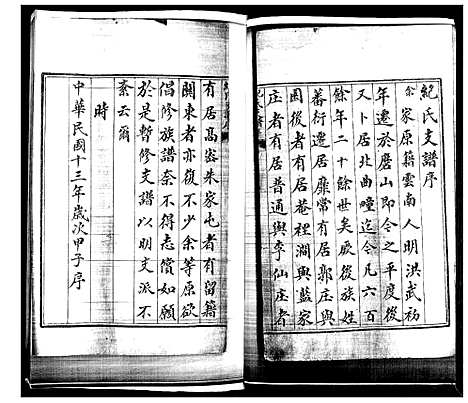 紀氏支譜序
余家原籍雲南人明洪武初
年遷於膠山即今之平度後
又卜居北曲疃迄今凡六百
餘年二十餘世矣厥後族姓
蕃衍遷居靡常有居郭庄與
園後者有居菴裡澗與藍家
庄者有居普通與李仙庄者
有居高崟朱家屯者有留籍
關東者亦復不少余等原欲
倡修族譜奈不得志償如願
於是暫修支譜以明支派不
紊云爾
時
中華民國十三年歲次甲子序